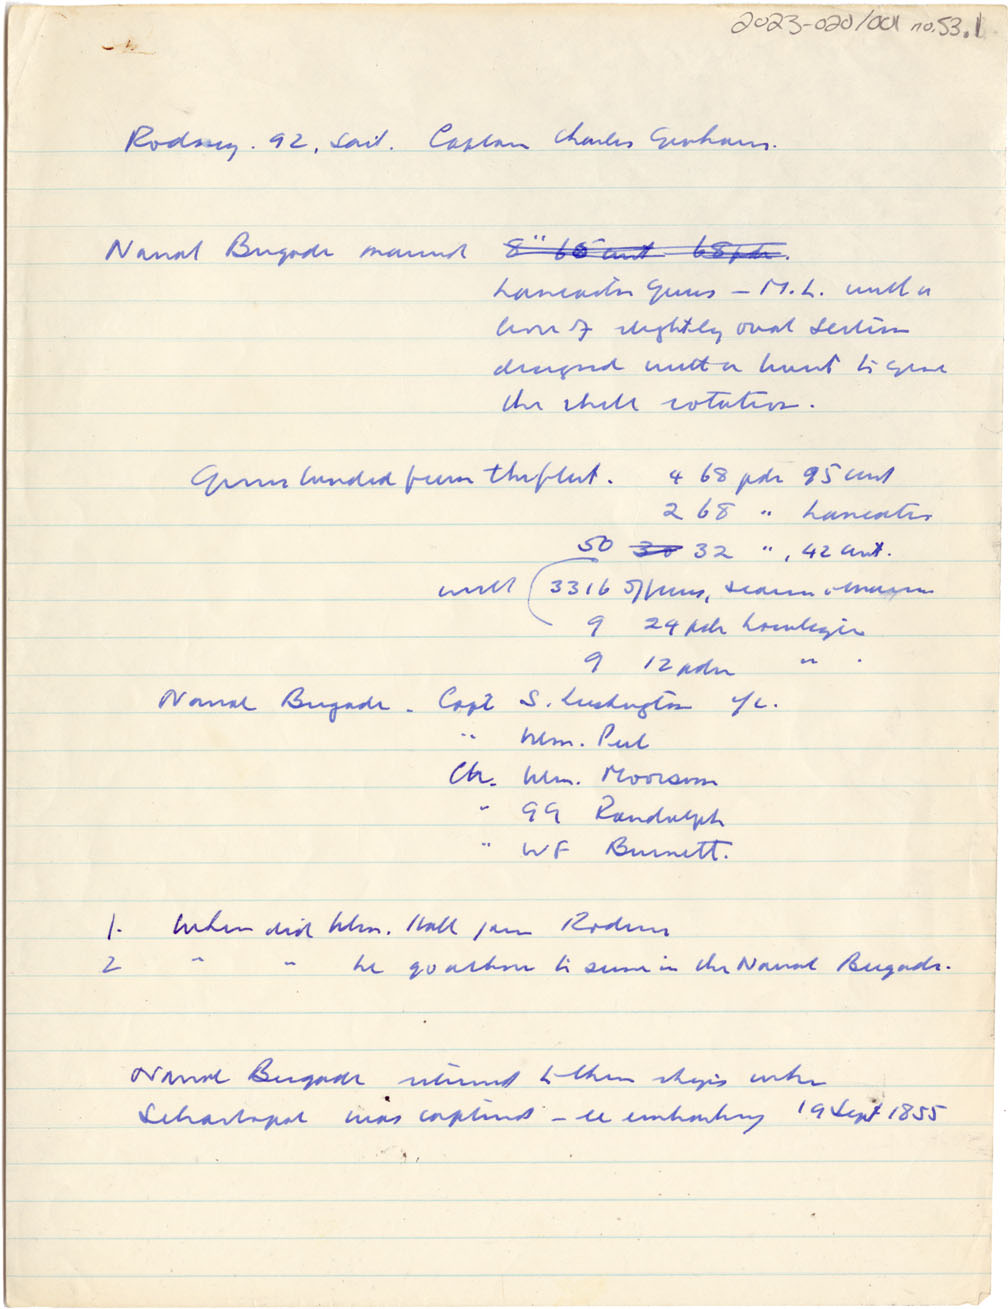 2023-020/001 no.53.1
Rodney. 92, Sail. Captain Charles Graham.
Naval Brigade manned 8" 65 cwt 68 pdr.
Lancaster Guns – M.L. with a
bore of slightly oval section
designed with a twist to give
the shell rotation.
Guns landed from the fleet. 4 68 pdr 95 cwt
2 68 " Lancaster
50 30 32 ", 42 cwt.
with (3316 officers, seamen & marines
9 24 pdr howitzers
9 12 pdr " .
Naval Brigade - Capt S. Lushington i/c.
" Wm. Peel
Cdr. Wm. Moorsom
" GG Randolph
" WF Burnett.
1. When did Wm. Hall join Rodney
2 " " he go ashore to serve in the Naval Brigade.
Naval Brigade returned to their ships when
Sebastopol was captured – re embarking 19 Sept 1855